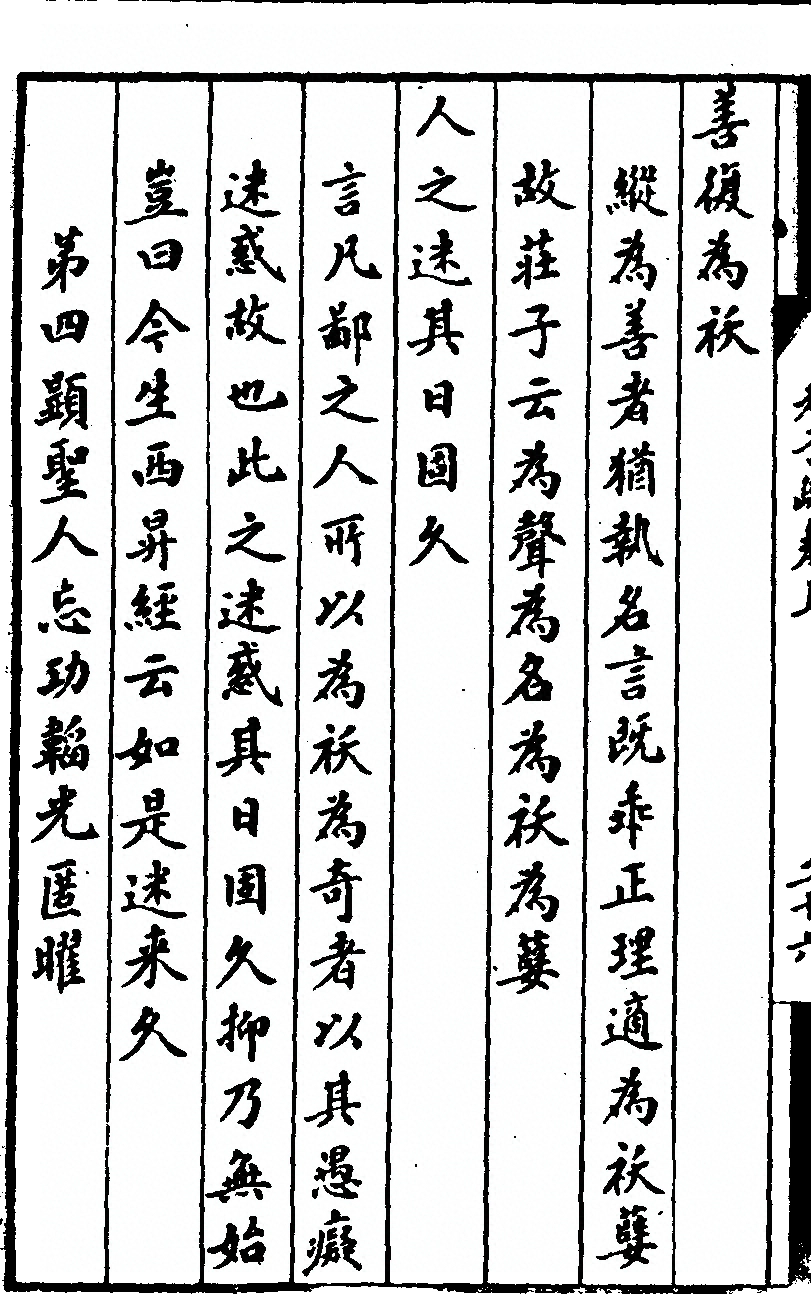 善復為祅
縱為善者猶執名言既乖正理適為祅孽
故莊子云為聲為名為祅為孽
人之迷其日固久
言凡鄙之人所以為祅為奇者以其愚癡
迷惑故也此之迷惑其日固久抑乃無始
豈曰今生西昇經云如是迷来久
第四顯聖人忘功韜光匿曜